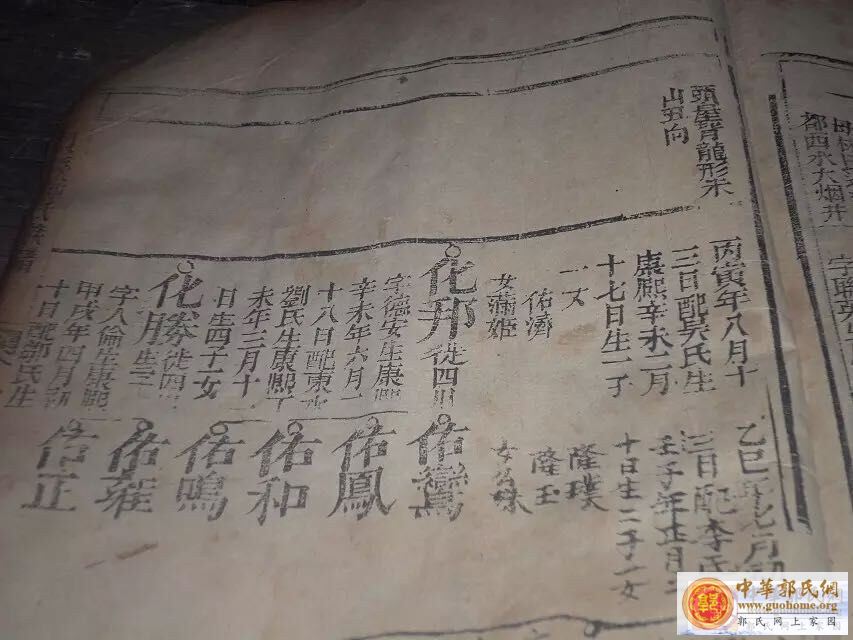 都西水大烟井
字聯英
頭屋背龍形未
山丑向
丙寅年八月十
三日配吴氏生
康熙辛未二月
十七日生一子
一女
佑濟
女滿姬
化邦徙四川
字德安生康熙
辛未年六月
十八日配東
劉氏生康熙
未年三月十
日生四子一女
化勝徙四川
字人倫生康熙
甲戌年四月初
十日配鄒氏生
乙巳年七月初
三日配李氏
壬子年正月二
十日生二子一女
隆璞
隆玉
女名珠
佑鸞
佑鳳
佑和
佑鳴
佑正
中華郭氏網
www.guohome.org
郭氏网上家园